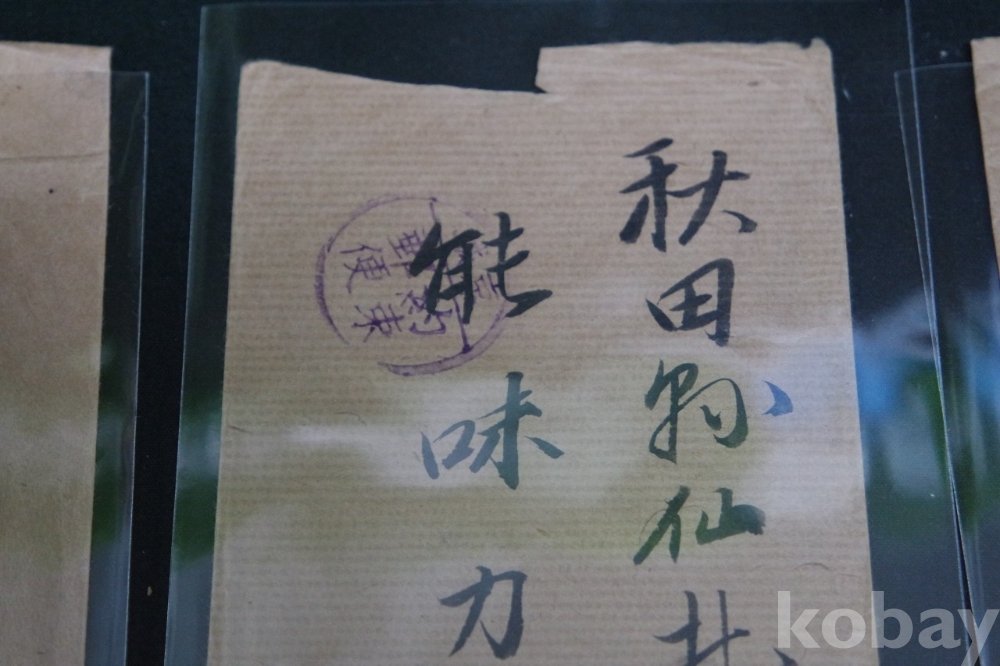 秋田縣仙北
能味力
約束
郵便
kobay